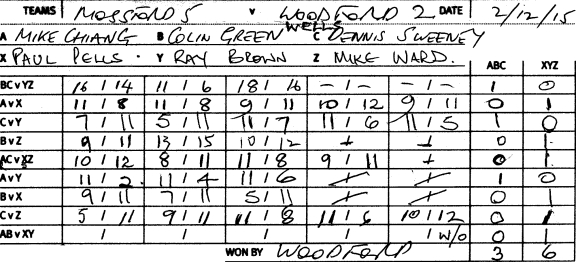 TEAMS MOSSFORD 5 V WOODFORD WELLS 2 DATE 2/12/15
A MIKE CHIANG B COLIN GREEN C DENNIS SWEENEY
X PAUL PELLS. Y RAY BROWN Z MIKE WARD. ABC XYZ
BCvYZ 16 / 14 11 / 6 18 / 16 - / - - / - 1 0
AvX 11 / 8 11 / 8 9 / 11 10 / 12 9 / 11 0 1
CvY 7 / 11 5 / 11 11 / 7 11 / 6 11 / 5 1 0
BvZ 9 / 11 13 / 15 10 / 12 / / 0 1
ACvXZ 10 / 12 8 / 11 11 / 8 9 / 11 / 0 1
AvY 11 / 2. 11 / 4 11 / 6 / / 1 0
BvX 9 / 11 7 / 11 5 / 11 / / 0 1
CvZ 5 / 11 9 / 11 11 / 8 11 / 6 10 / 12 0 1
ABvXY / / / / / W/O 0 1
WON BY WOODFORD 3 6